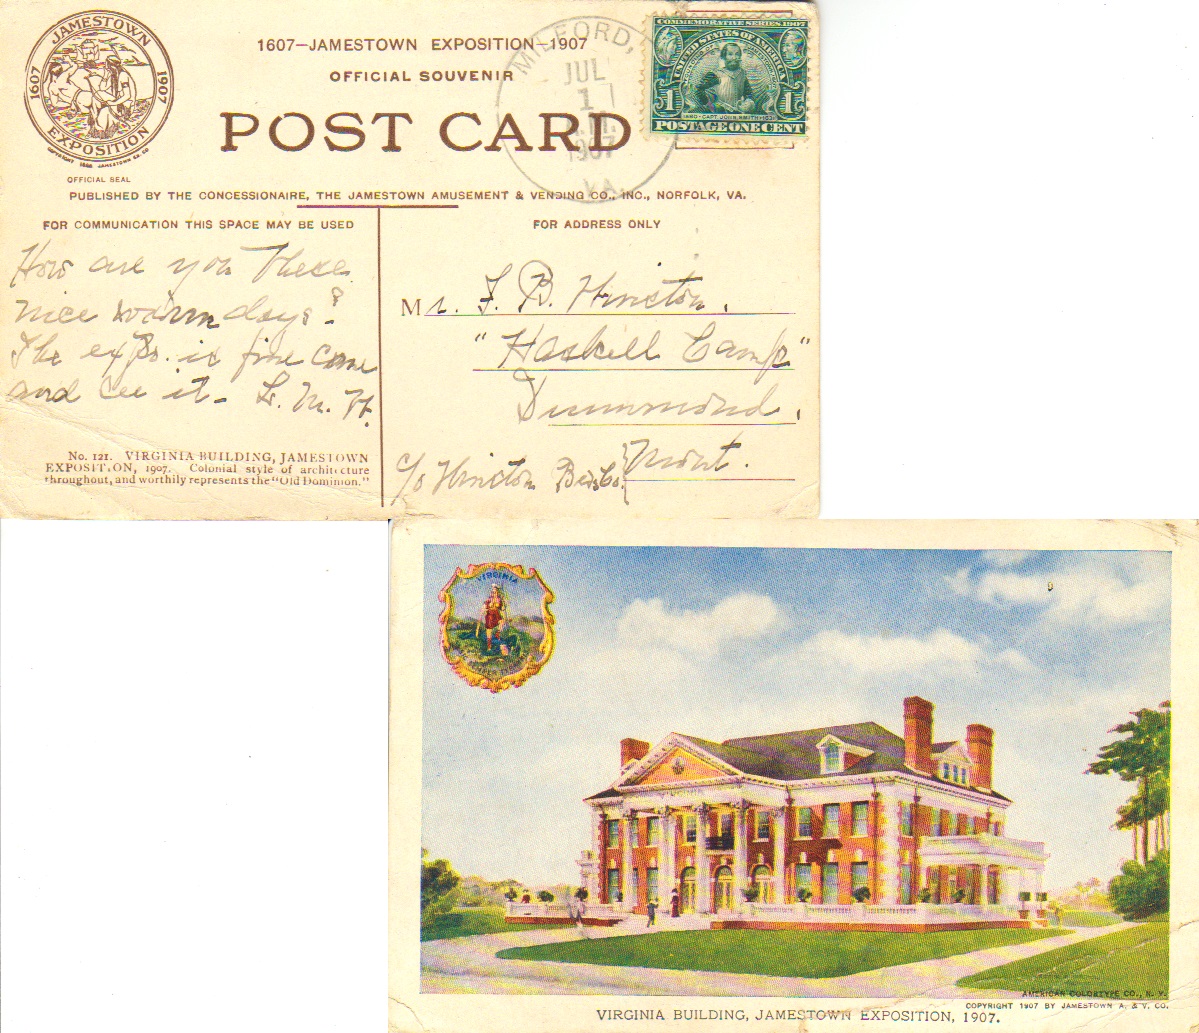 JAMESTOWN
1607 1907
EXPOSITION
OFFICIAL SEAL
1607—JAMESTOWN EXPOSITION—1907
OFFICIAL SOUVENIR
POST CARD
MILFORD,
JUL
1
1907
VA.
COMMEMORATIVE SERIES 1907
UNITED STATES OF AMERICA
1 1
1580-CAPT. JOHN SMITH-1631
POSTAGE ONE CENT
PUBLISHED BY THE CONCESSIONAIRE, THE JAMESTOWN AMUSEMENT & VENDING CO., INC., NORFOLK, VA.
FOR COMMUNICATION THIS SPACE MAY BE USED
How are you these
nice warm days?
The expo. is fine come
and see it - L. M. H.
No. 121. VIRGINIA BUILDING, JAMESTOWN
EXPOSITION, 1907. Colonial style of architecture
throughout, and worthily represents the "Old Dominion."
FOR ADDRESS ONLY
Mr. F. B. Hinston.
"Haskell Camp"
Drummond,
Mont.
c/o Hinston Bros. Co.
VIRGINIA
AMERICAN COLORTYPE CO., N. Y.
COPYRIGHT 1907 BY JAMESTOWN A. & V. CO.
VIRGINIA BUILDING, JAMESTOWN EXPOSITION, 1907.